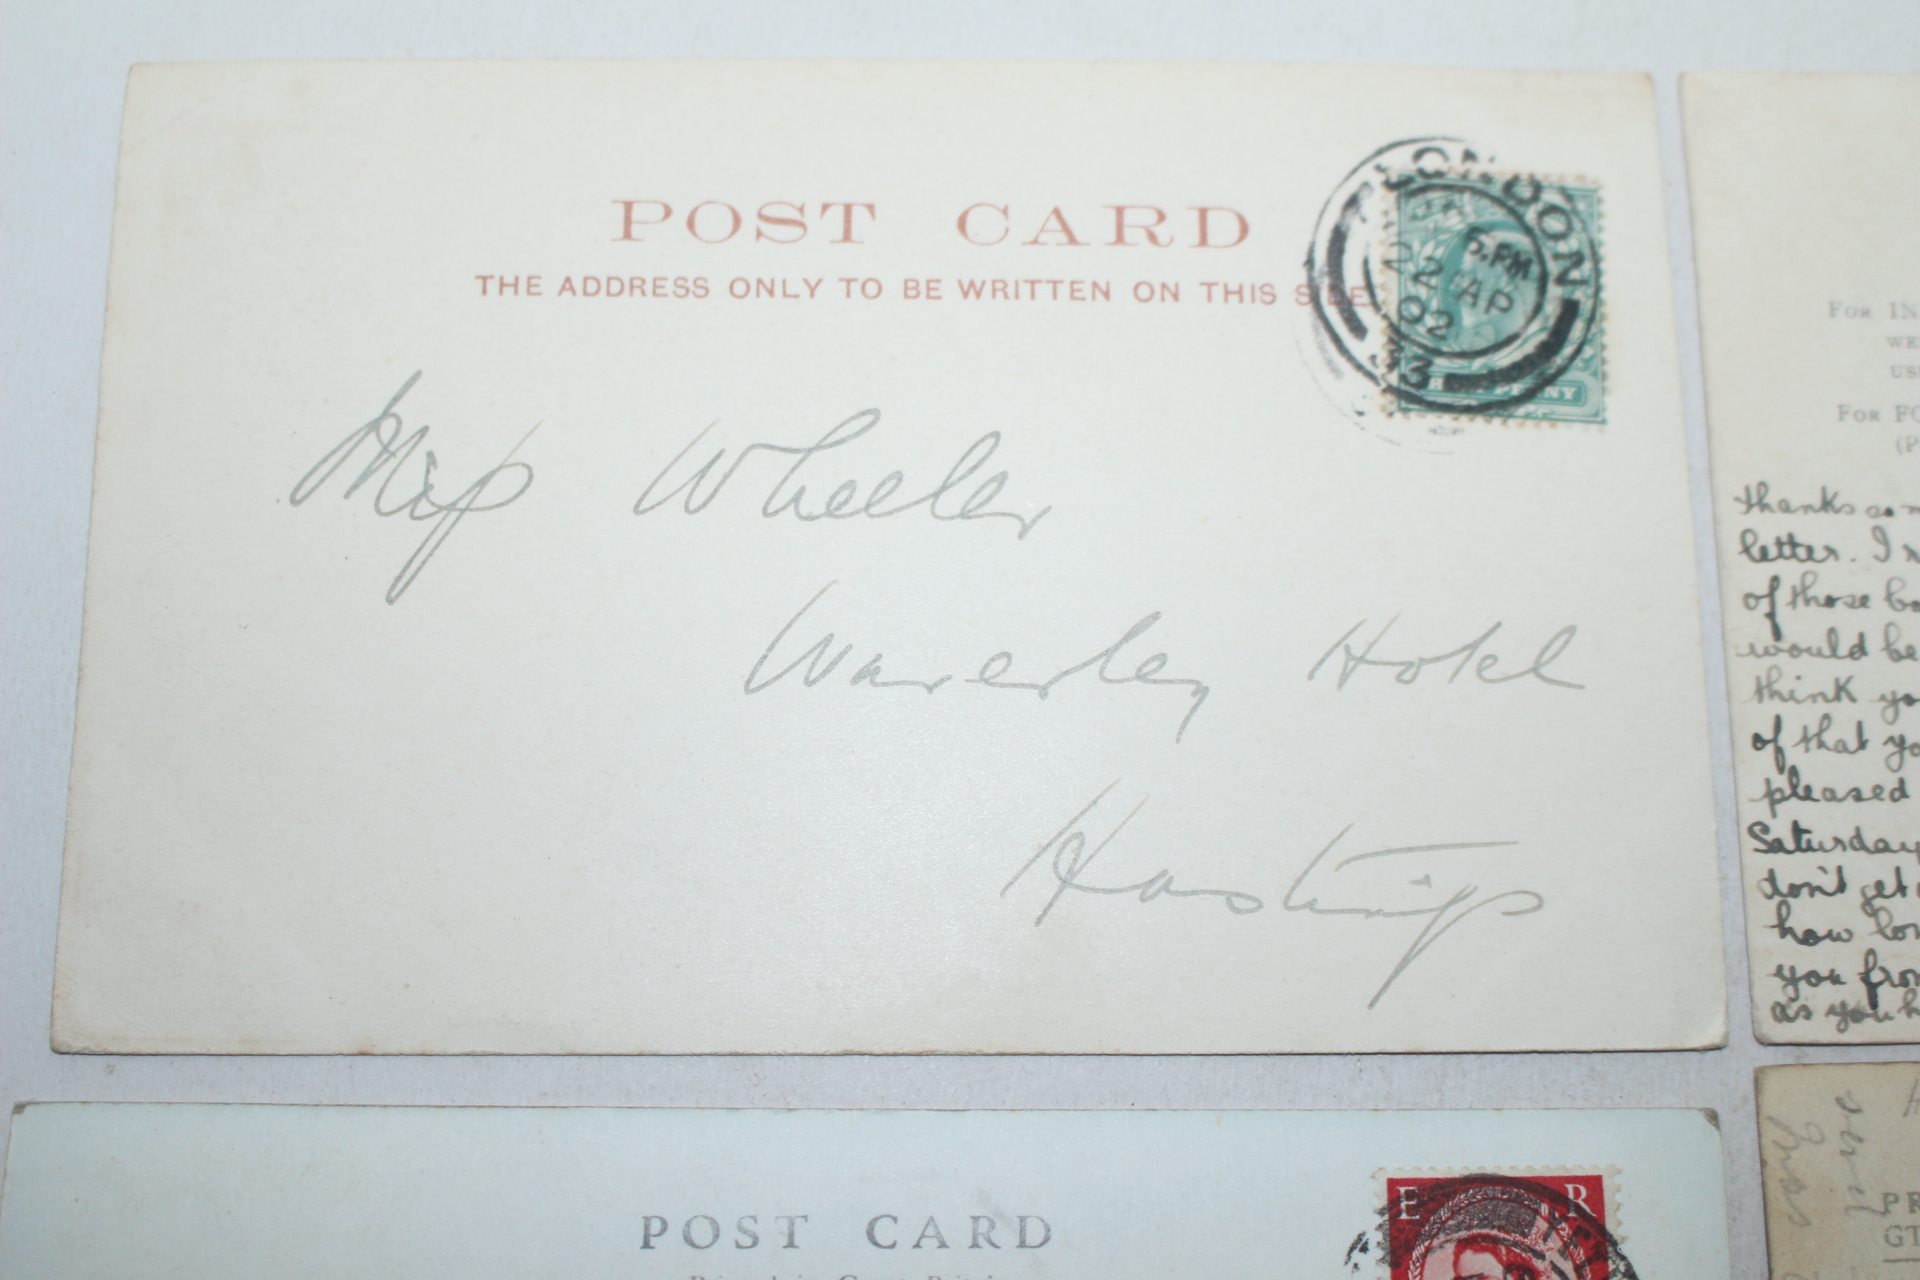 POST CARD
THE ADDRESS ONLY TO BE WRITTEN ON THIS SIDE
LONDON
6.PM
22 AP
02
33
HALF PENNY
Miss Wheeler
Waverley Hotel
Hastings
FOR IN
WE
US
FOR FO
(P
thanks so m
letter. I
of those bo
would be
think yo
of that yo
pleased
Saturday
don't get
how lon
you from
as you h
POST CARD
E R
PR
GT